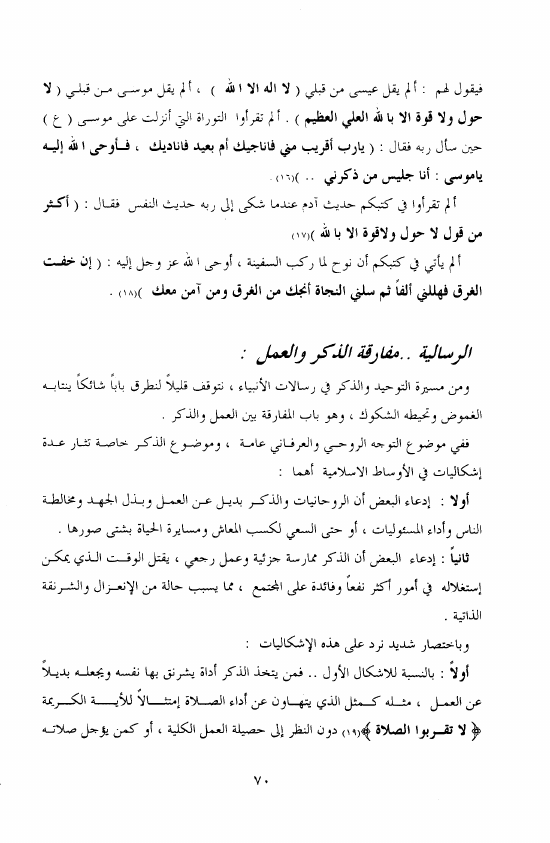 فيقول لهم : ألم يقل عيسى من قبلي ( لا اله الا الله ) ، ألم يقل موسى من قبلي ( لا
حول ولا قوة الا بالله العلي العظيم ) . ألم تقرأوا التوراة التي أنزلت على موسى ( ع )
حين سأل ربه فقال : ( يارب أقريب مني فاناجيك أم بعيد فاناديك ، فأوحى الله إليه
ياموسى : أنا جليس من ذكرني .. )(١٦).
ألم تقرأوا في كتبكم حديث آدم عندما شكى إلى ربه حديث النفس فقال : ( أكثر
من قول لا حول ولاقوة الا بالله )(١٧)
ألم يأتي في كتبكم أن نوح لما ركب السفينة ، أوحى الله عز وجل إليه : ( إن خفت
الغرق فهللني ألفاً ثم سلني النجاة أنجك من الغرق ومن آمن معك )(١٨) .
الرسالية .. مفارقة الذكر والعمل :
ومن مسيرة التوحيد والذكر في رسالات الأنبياء ، نتوقف قليلاً لنطرق باباً شائكاً ينتابه
الغموض وتحيطه الشكوك ، وهو باب المفارقة بين العمل والذكر .
ففي موضوع التوجه الروحي والعرفاني عامة ، وموضوع الذكر خاصة تثار عدة
إشكاليات في الأوساط الاسلامية أهما :
أولا : إدعاء البعض أن الروحانيات والذكر بديل عن العمل وبذل الجهد ومخالطة
الناس وأداء المسئوليات ، أو حتى السعي لكسب المعاش ومسايرة الحياة بشتى صورها .
ثانياً : إدعاء البعض أن الذكر ممارسة جزئية وعمل رجعي ، يقتل الوقت الذي يمكن
إستغلاله في أمور أكثر نفعاً وفائدة على المجتمع ، مما يسبب حالة من الإنعزال والشرنقة
الذاتية .
وباختصار شديد نرد على هذه الإشكاليات :
أولاً : بالنسبة للاشكال الأول .. فمن يتخذ الذكر أداة يشرنق بها نفسه ويجعله بديلاً
عن العمل ، مثله كمثل الذي يتهاون عن أداء الصلاة إمتثالاً للأية الكريمة
﴿ لا تقربوا الصلاة ﴾(١٩) دون النظر إلى حصيلة العمل الكلية ، أو كمن يؤجل صلاته
٧٠